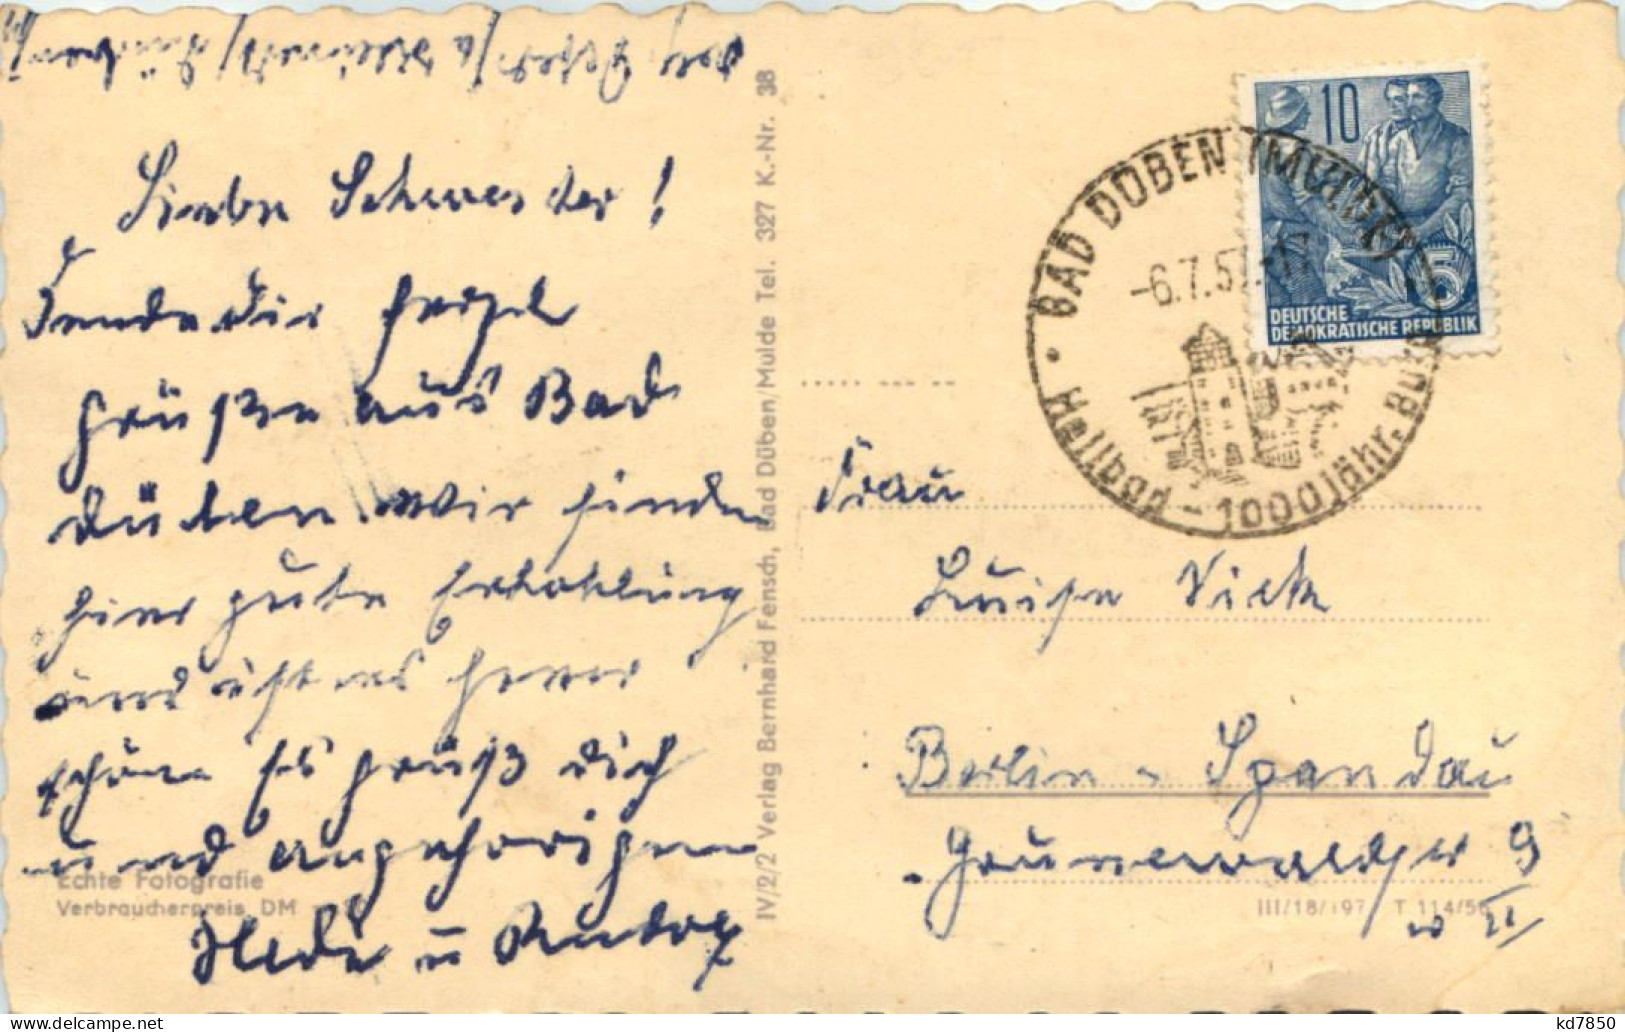 Liebe Schwester!
Sende dir herzl
grüße aus Bad
düben. Wir finden
hier gute Erhohlung
und ist es hier
schön Es grüßt dich
und angehörigen
Hede u Rudolf
Echte Fotografie
Verbraucherpreis DM
IV/2/2 Verlag Bernhard Fensch, Bad Düben/Mulde Tel. 327 K.-Nr. 38
10
5
DEUTSCHE
DEMOKRATISCHE REPUBLIK
BAD DÜBEN (MULDE)
-6.7.57.-17
Heilbad - 1000jähr. Burg
Frau
Luise
Berlin - Spandau
Grunewaldstr 9
III/18/197 T 114/56